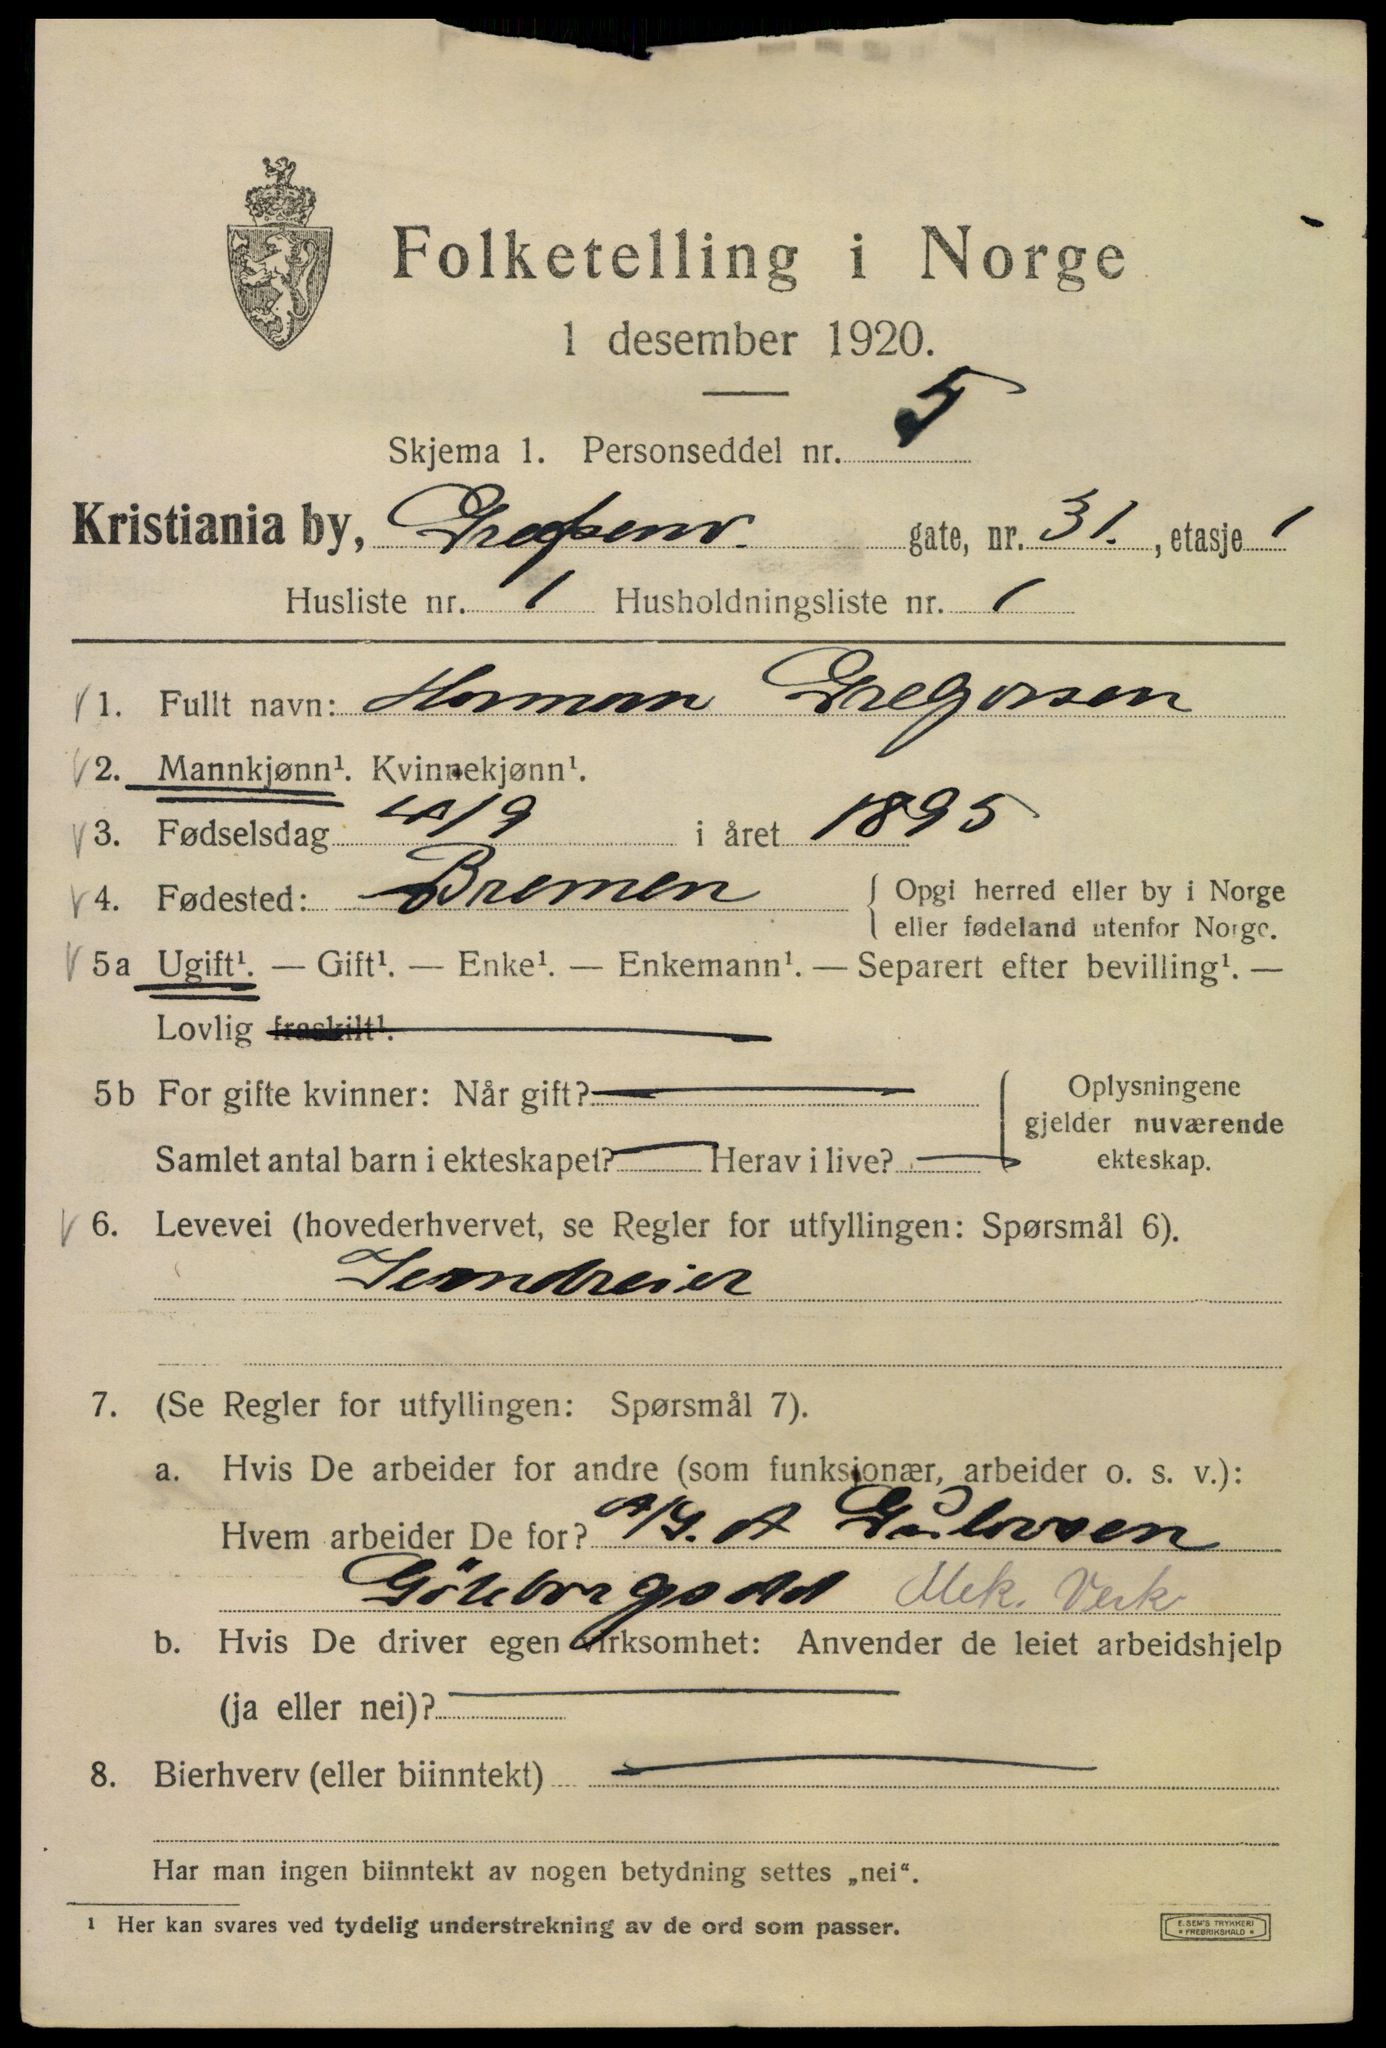 Folketelling i Norge
1 desember 1920.
Skjema 1. Personseddel nr. 5
Kristiania by, Grefsenv. gate, nr. 31., etasje 1
Husliste nr. 1 Husholdningsliste nr. 1
1. Fullt navn: Herman Gregersen
2. Mannkjønn¹. Kvinnekjønn¹.
3. Fødselsdag 4/9 i året 1895
4. Fødested: Bremen { Opgi herred eller by i Norge
eller fødeland utenfor Norge.
5a Ugift¹. — Gift¹. — Enke¹. — Enkemann¹. — Separert efter bevilling¹. —
Lovlig fraskilt¹.
5b For gifte kvinner: Når gift? { Oplysningene
gjelder nuværende
Samlet antal barn i ekteskapet? Herav i live? ekteskap.
6. Levevei (hovederhvervet, se Regler for utfyllingen: Spørsmål 6).
Jerndreier
7. (Se Regler for utfyllingen: Spørsmål 7).
a. Hvis De arbeider for andre (som funksjonær, arbeider o. s. v.):
Hvem arbeider De for? A/S. A Gulovsen
Göteborgsdd Mek. Verk
b. Hvis De driver egen virksomhet: Anvender de leiet arbeidshjelp
(ja eller nei)?
8. Bierhverv (eller biinntekt)
Har man ingen biinntekt av nogen betydning settes „nei“.
1 Her kan svares ved tydelig understrekning av de ord som passer.
E. SEM'S TRYKKERI
* FREDRIKSHALD *